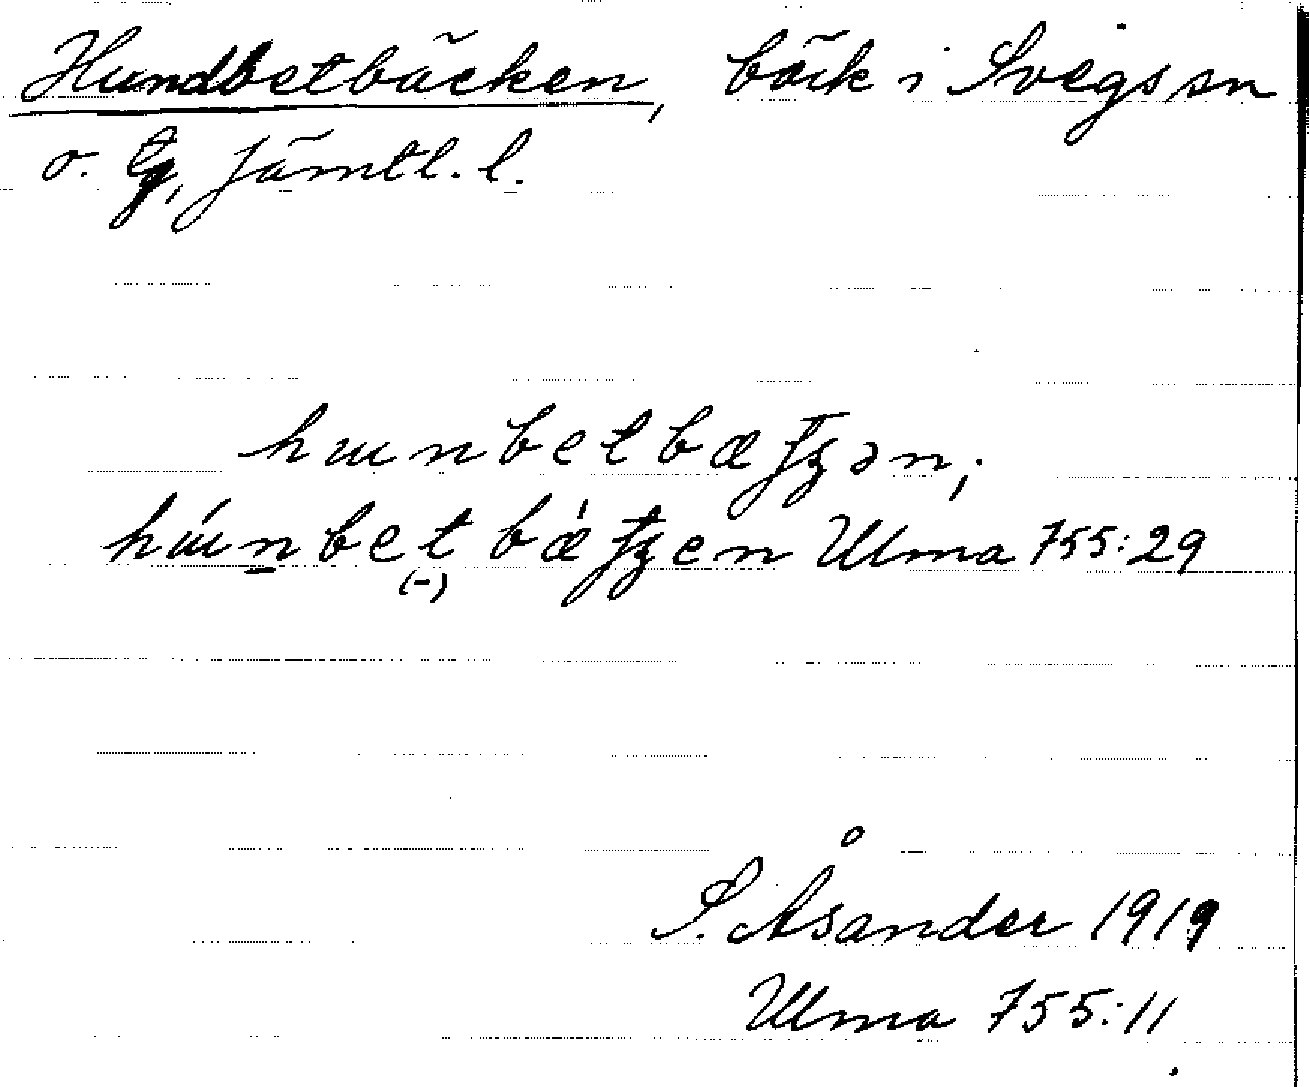 Hundbetbäcken, bäck i Svegs sn
o. tg, Jämtl. l.
hɯnbetbæʈʂən;
hɯ́nbetbǽʈʂen Ulma 755:29
(-)
S. Åsander 1919
Ulma 755:11